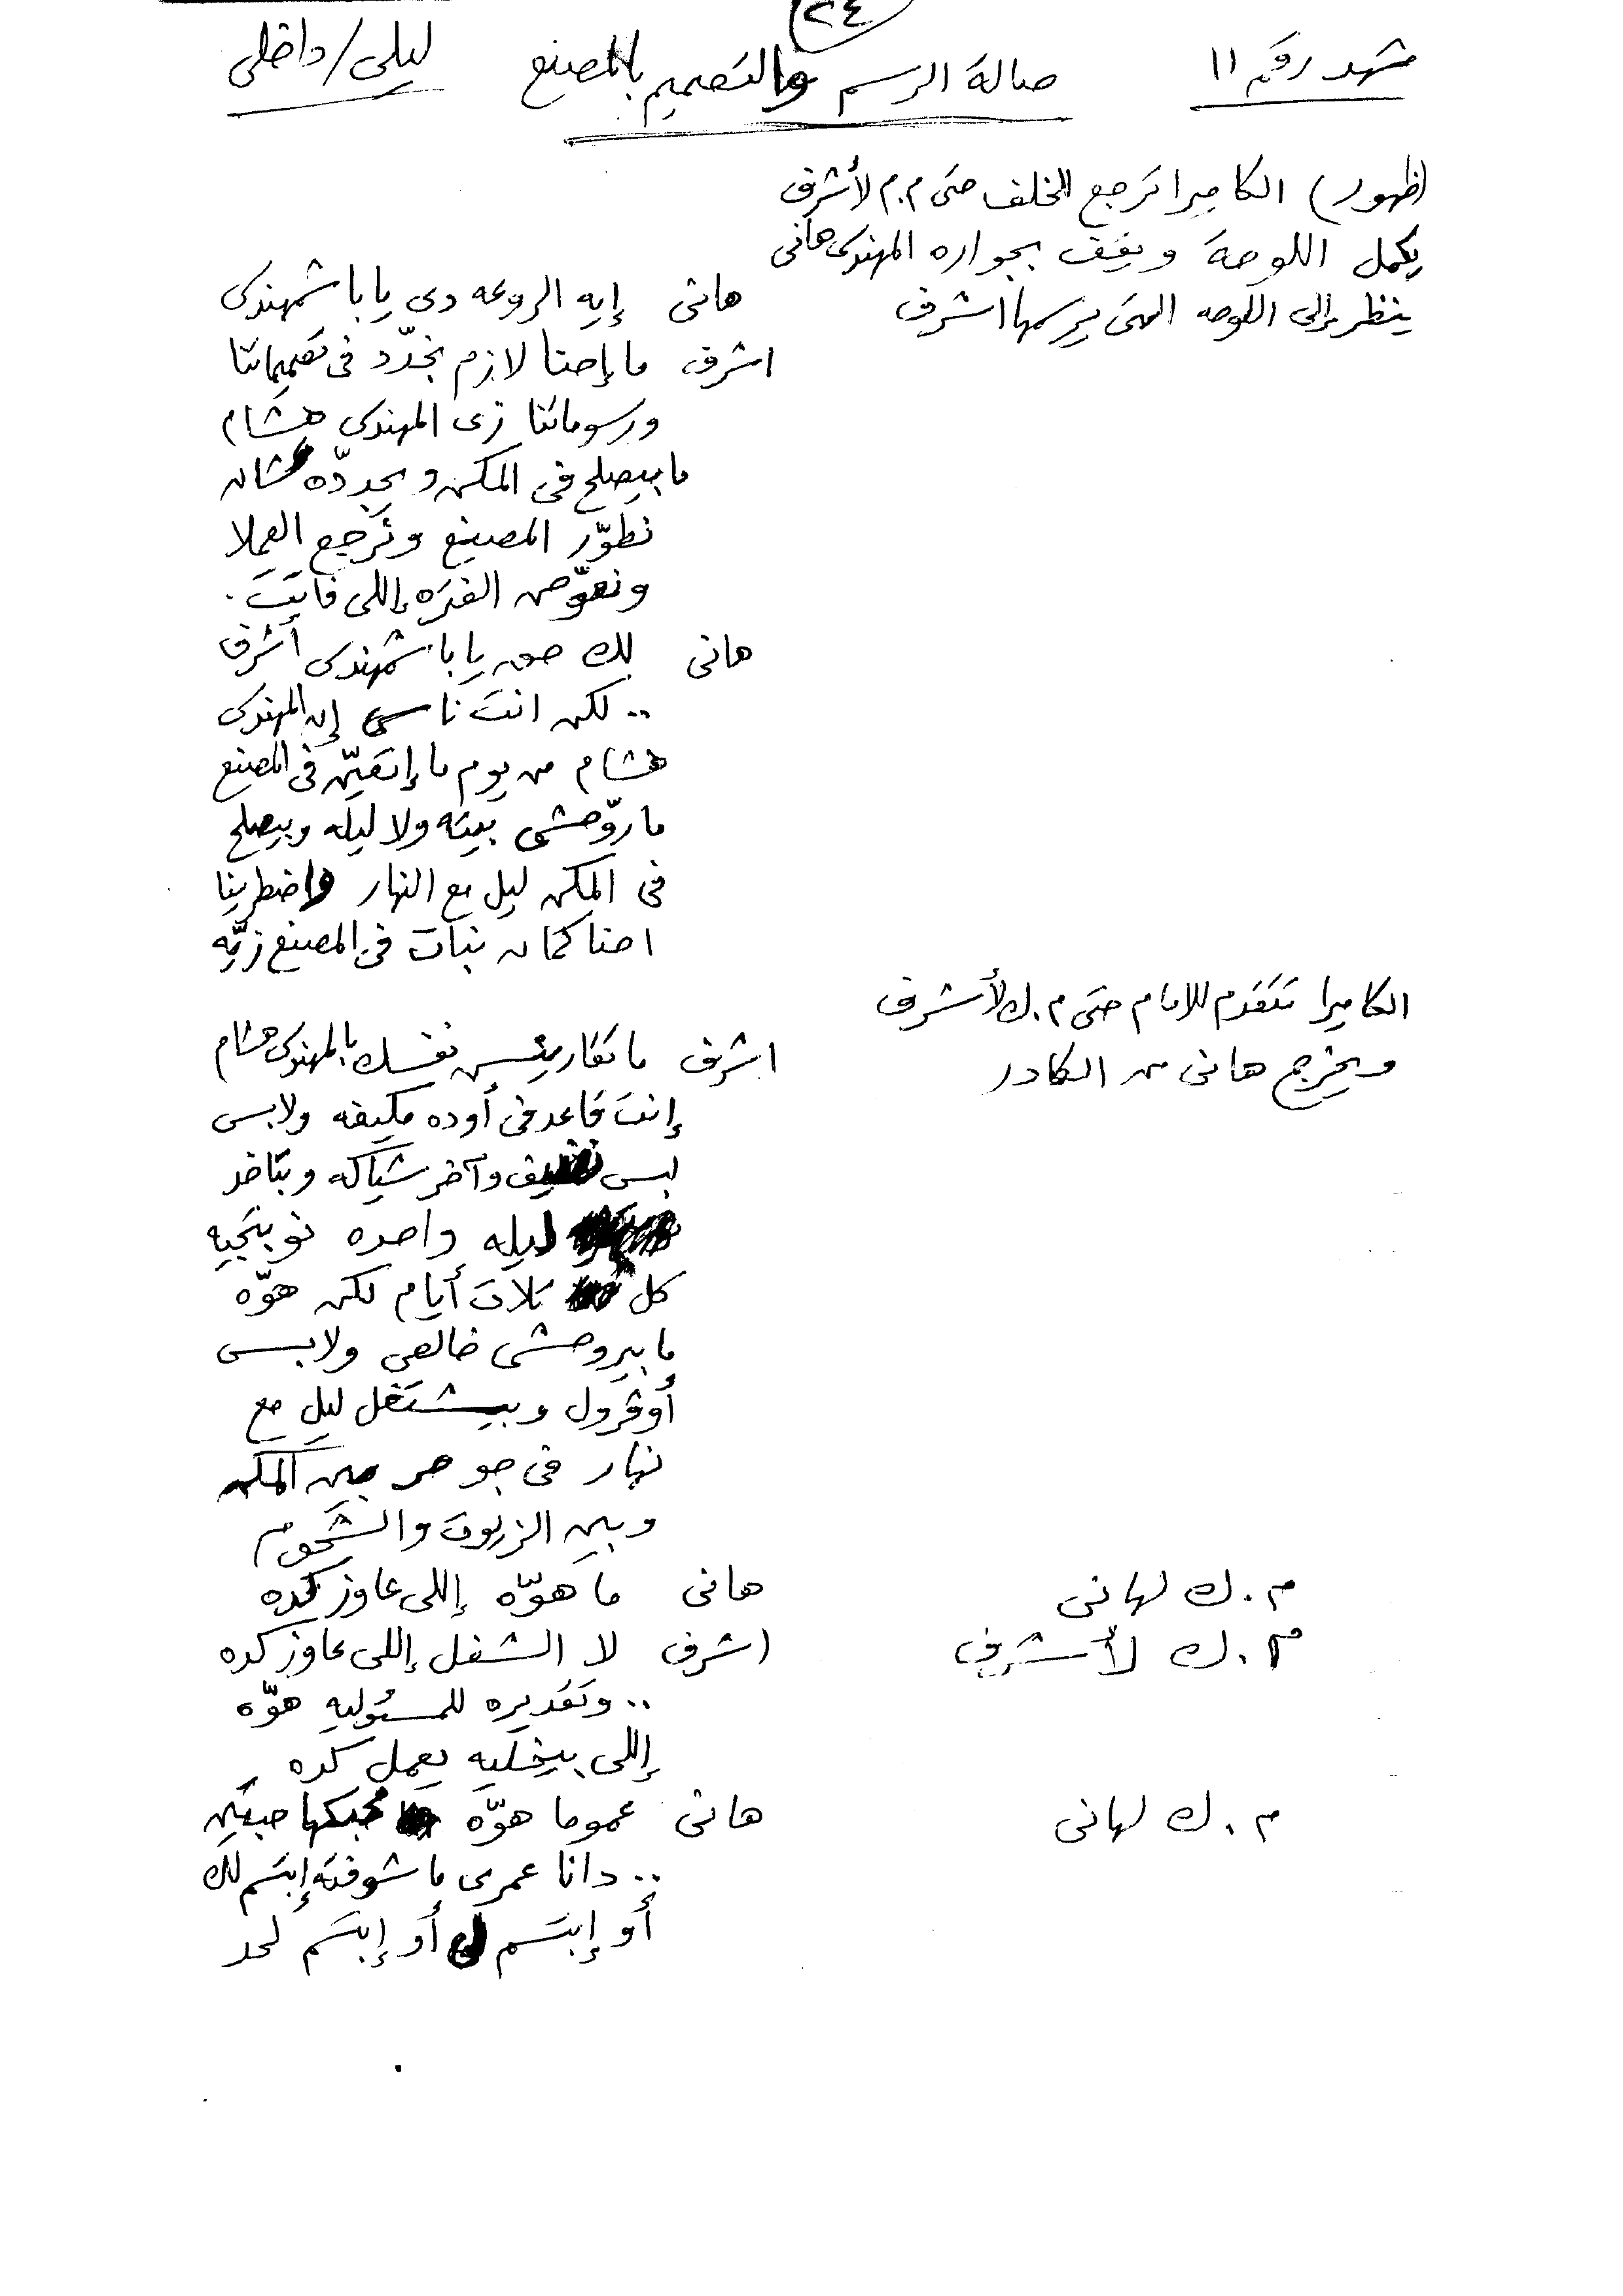 ٢٤
مشهد رقم ١١ صالة الرسم والتصميم بالمصنع ليلى/داخلى
(ظهور) الكاميرا ترجع للخلف حتى م.م لأشرف
يكمل اللوحة ويقف بجواره المهندس هانى
ينظر إلى اللوحه التى يرسمها اشرف
هانى إيه الروعه دى يا باشمهندس
اشرف ما إحنا لازم نجدّد فى تصميماتنا
ورسوماتنا زى المهندس هشام
ما بيصلح فى المكن ويجددّه عشان
نطوّر المصنع ونرجع العملا
ونعوّض الفتره إللى فاتت.
هانى لك حق يا باشمهندس أشرف
.. لكن انت ناسى إن المهندس
هشام من يوم ما إتعيّن فى المصنع
ما روّحشى بيته ولا ليله وبيصلح
فى المكن ليل مع النهار واضطرينا
احنا كمان نبات فى المصنع زيّه
الكاميرا تتقدم للامام حتى م.ك لأشرف
ويخرج هانى من الكادر
اشرف ما تقارنش نفسك بالمهندس هشام
إنت قاعد فى أوده مكيفه ولابس
لبس نضيف وآخر شياكه وبتاخد
ليله واحده نوبتجيه
كل تلات أيام لكن هوّه
ما بيروحشى خالص ولابس
أوڤرول وبيشتغل ليل مع
نهار فى جو حر بين المكن
وبين الزيوت والشحوم
م.ك لهانى
هانى ما هوّه إللى عاوز كده
م.ك لأشرف
اشرف لا الشغل إللى عاوز كده
.. وتقديره للمسئوليه هوّه
إللى بيخليه يعمل كده
م.ك لهانى
هانى عموما هوّه محبكها حبتين
.. دانا عمرى ما شوفته إبتسم لك
أو إبتسم لى أو إبتسم لحد